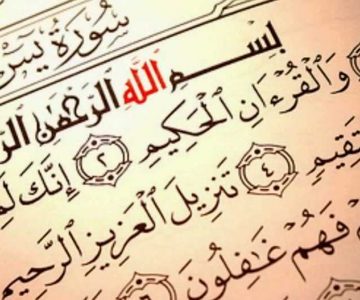 سُورَةُ يسٓ
بِسْمِ ٱللَّهِ ٱلرَّحْمَٰنِ
وَٱلْقُرْءَانِ ٱلْحَكِيمِ ٢ إِنَّكَ
٤ تَنزِيلَ ٱلْعَزِيزِ ٱلرَّحِيمِ
فَهُمْ غَٰفِلُونَ ٦